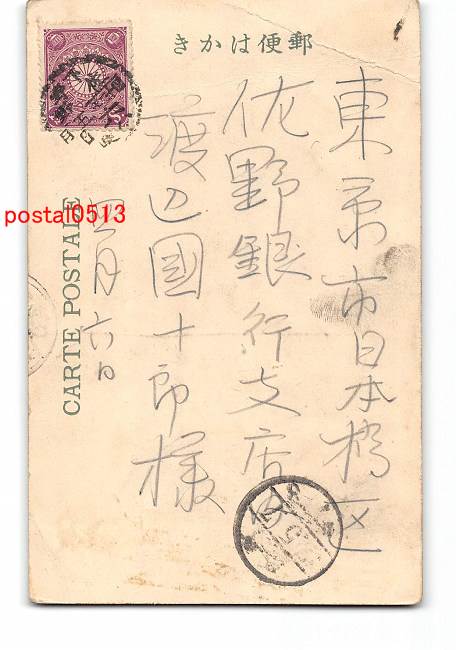 郵便はかき
東京市日本橋区
佐野銀行支店内
渡辺國十郎様
四月六日
CARTE POSTALE
postal0513